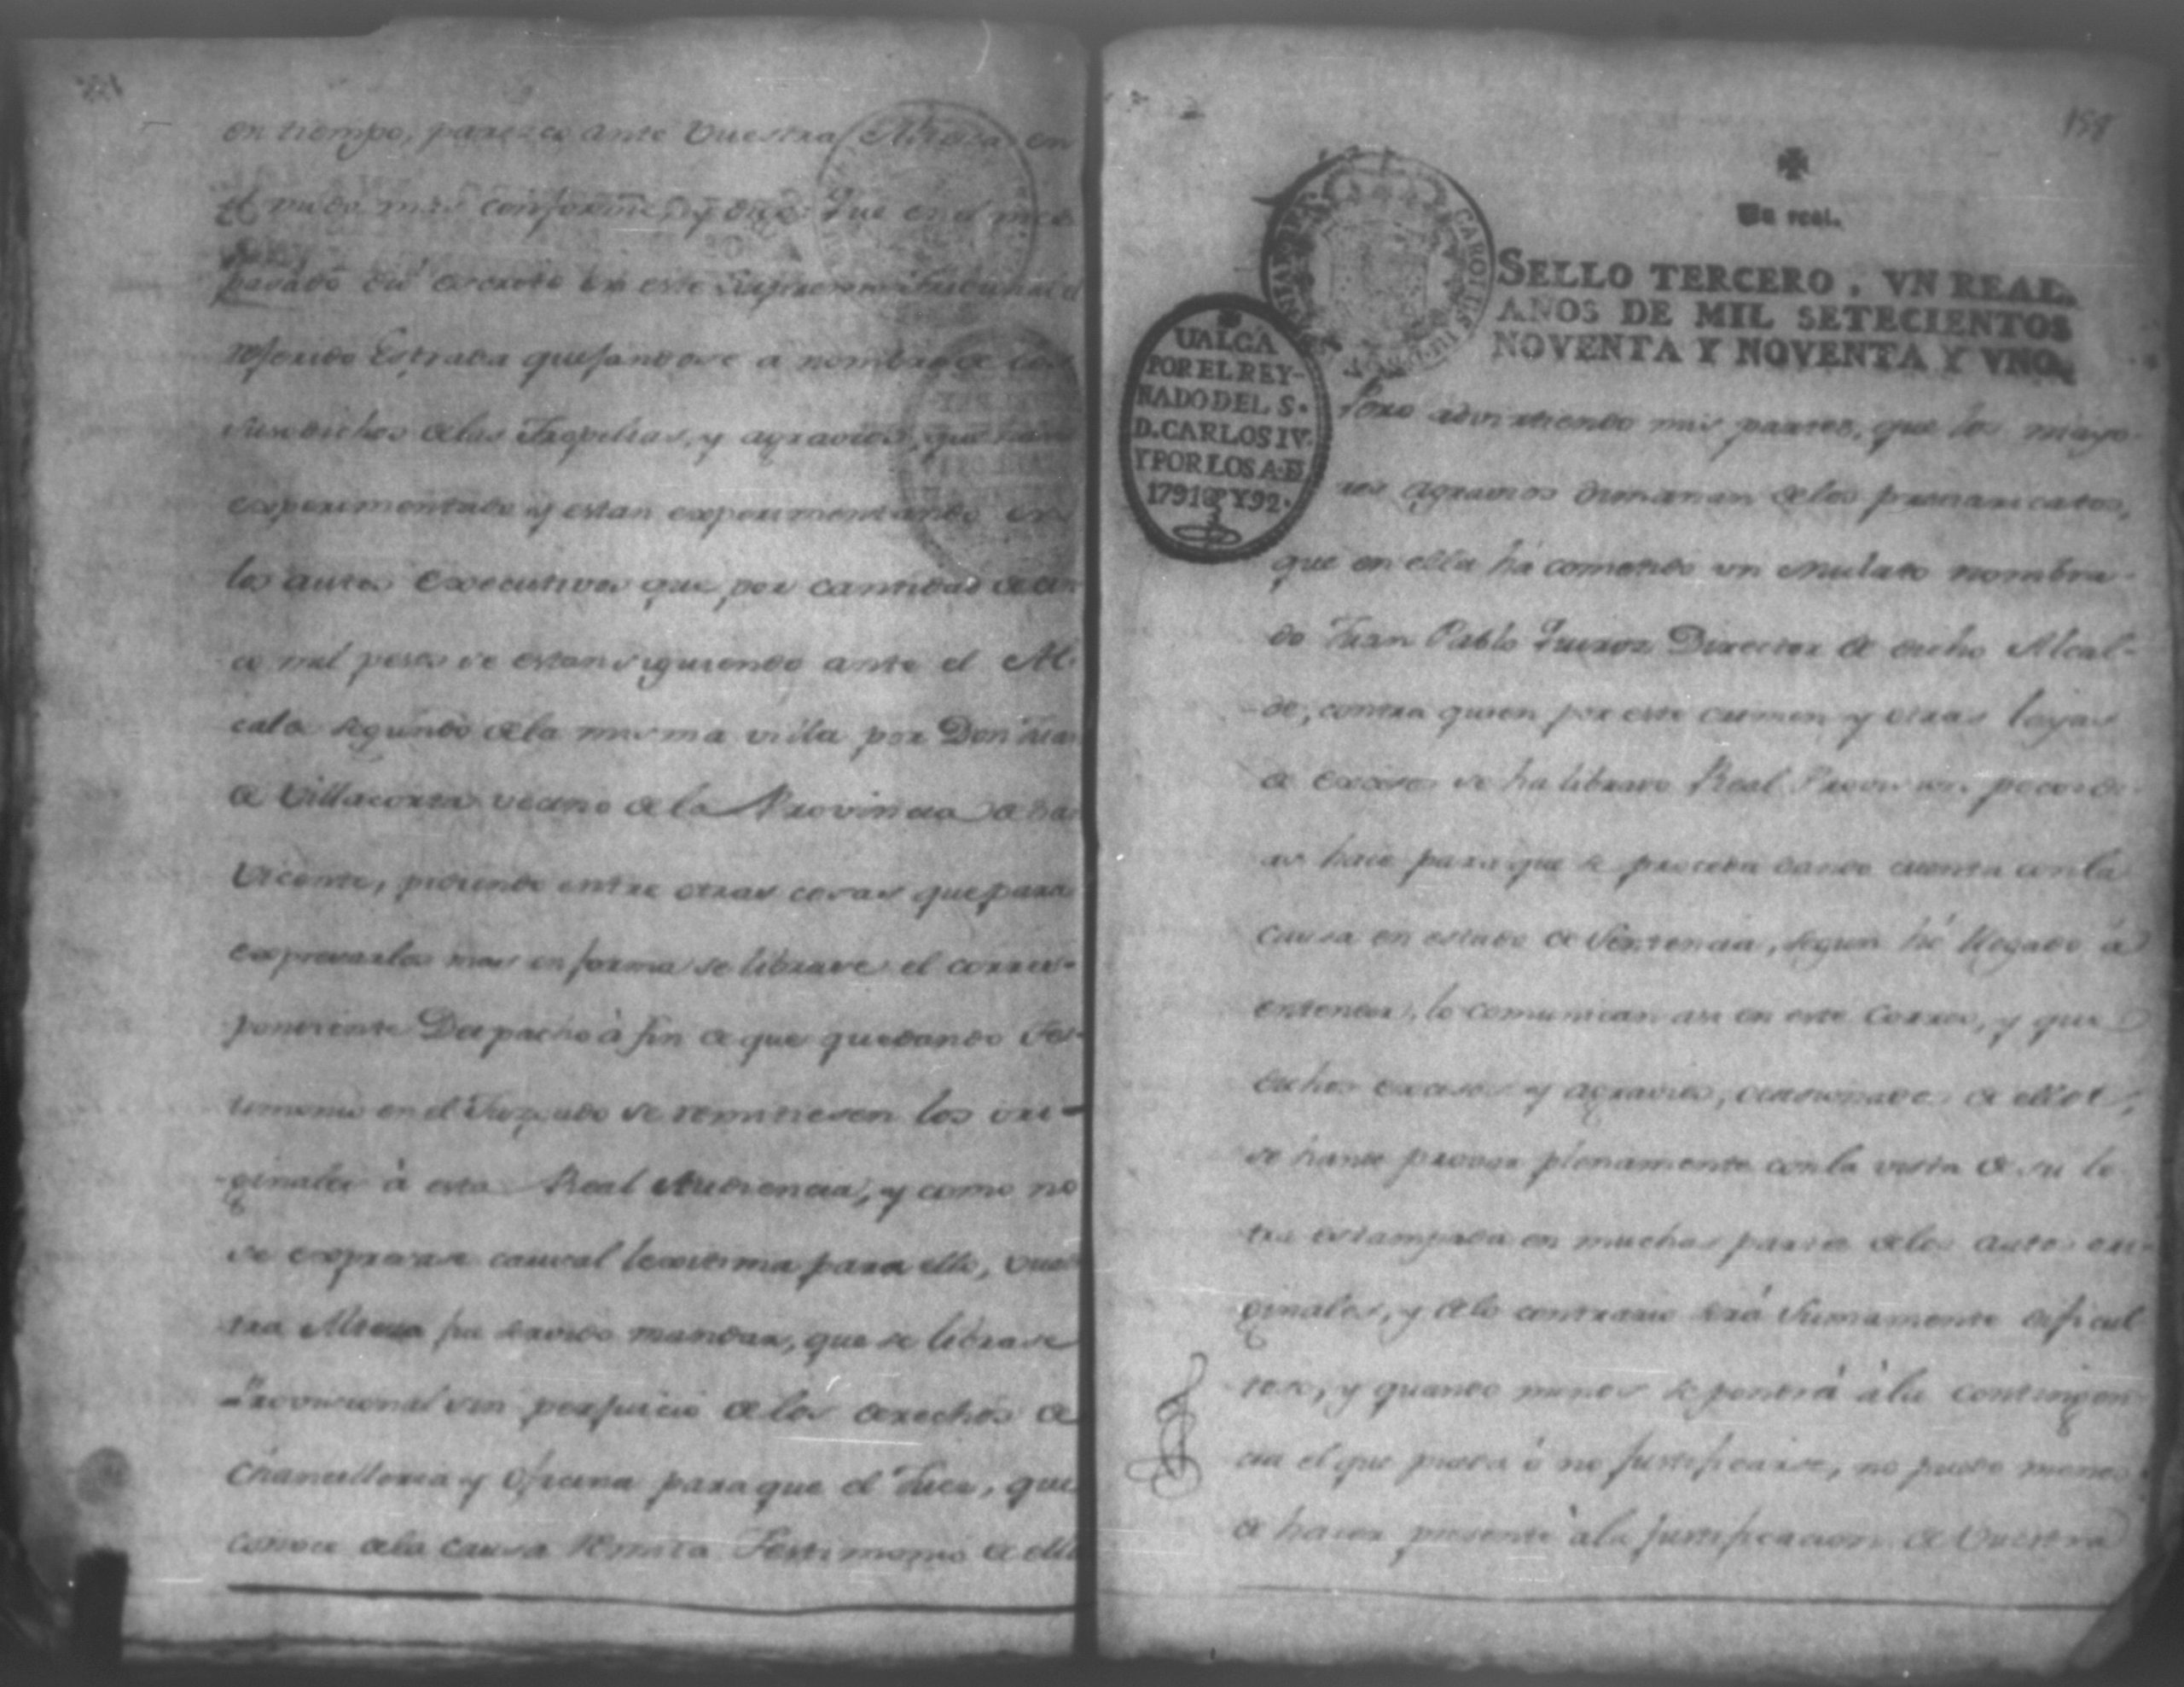 en tiempo, parezco ante Vuestra Alteza en
el modo mas conforme, y digo: Que en el mes
pasado dio escrito en este Superior Tribunal el
referido Estrada quejandose a nombre de los
susodichos de las Tropelias, y agravios, que han
experimentado y estan experimentando en
los autos executivos que por cantidad de
ce mil pesos se estan siguiendo ante el Al-
calde segundo de la misma villa por Don Juan
de Villacorta vecino de la Provincia de San
Vicente, pidiendo entre otras cosas que para
expresarlos mas en forma se librase el corres-
pondiente Despacho à fin de que quedando Tes-
timonio en el Juzgado se remitiesen los ori-
ginales à esta Real Audiencia, y como no
se expresase causal lexitima para ello, Vues-
tra Alteza fue servido mandar, que se librase
Provicional sin perjuicio de los derechos de
Chancilleria y Oficina para que el Juez, que
conoce de la causa remita Testimonio de ella
158
Un real.
SELLO TERCERO, VN REAL,
AÑOS DE MIL SETECIENTOS
NOVENTA Y NOVENTA Y VNO.
CAROLUS
UALGA
POR EL REY-
NADO DEL S.
D. CARLOS IV.
Y POR LOS A. D
1791 Y 92.
Pero advirtiendo mis partes, que los mayo-
res agravios dimanan de los prevaricatos,
que en ella há cometido un Mulato nombra-
do Juan Pablo Quiroz Director de dicho Alcal-
de, contra quien por este crimen y otras
de excesos se ha librado Real Provision pocos di-
as hace para que se proceda dando cuenta con la
causa en estado de Sentencia, segun hé llegado à
entender, lo comunican asi en este Correo, y que
dichos excesos y agravios, ocasionados a ellos,
se han de provar plenamente con la vista de su le
tra estampada en muchas partes de los autos ori-
ginales, y de lo contrario será Sumamente dificul
toso, y quando menos se pondrá à la contingen
cia el que pueda ó no justificarse, no puedo menos
de hacer presente à la justificacion de Vuestra